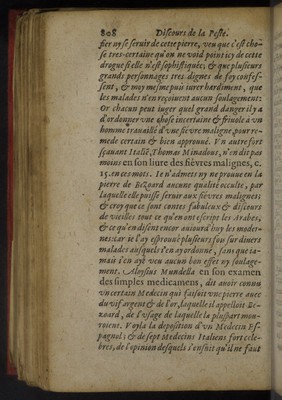 808 Discours de la Peste.
fier ny se seruir de cette pierre, veu que c'est cho-
se tres-certaine qu'on ne void point icy de cette
drogue si elle n'est sophistiquée; & que plusieurs
grands personnages tres dignes de foy confes-
sent, & moy mesme puis iurer hardiment, que
les malades n'en reçoiuent aucun soulagement:
Or chacun peut iuger quel grand danger il y a
d'ordonner vne chose incertaine & friuole à vn
homme trauaillé d'vne fiévre maligne, pour re-
mede certain & bien approuué. Vn autre fort
sçauant Italiē, Thomas Minadous, n'en dit pas
moins en son liure des fiévres malignes, c.
15. en ces mots. Ie n'admets ny ne prouue en la
pierre de Bezoard aucune qualité occulte, par
laquelle elle puisse seruir aux fiévres malignes;
& croy que ce sont contes fabuleux & discours
de vieilles tout ce qu'en ont escript les Arabes,
& ce qu'en disent encor auiourd'huy les moder-
nes: car ie l'ay esprouué plusieurs fois sur diuers
malades ausquels i'en ay ordonné, sans que ia-
mais i'en aye veu aucun bon effet ny soulage-
ment. Aloysius Mundella en son examen
des simples medicamens, dit auoir connu
vn certain Medecin qui faisoit vne pierre auec
du vif argent & de l'or, laquelle il appelloit Be-
zoard, de l'vsage de laquelle la pluspart mou-
roient. Voyla la deposition d'vn Medecin Es-
pagnol; & de sept Medecins Italiens fort cele-
bres, de l'opinion desquels s'ensuit qu'il ne faut